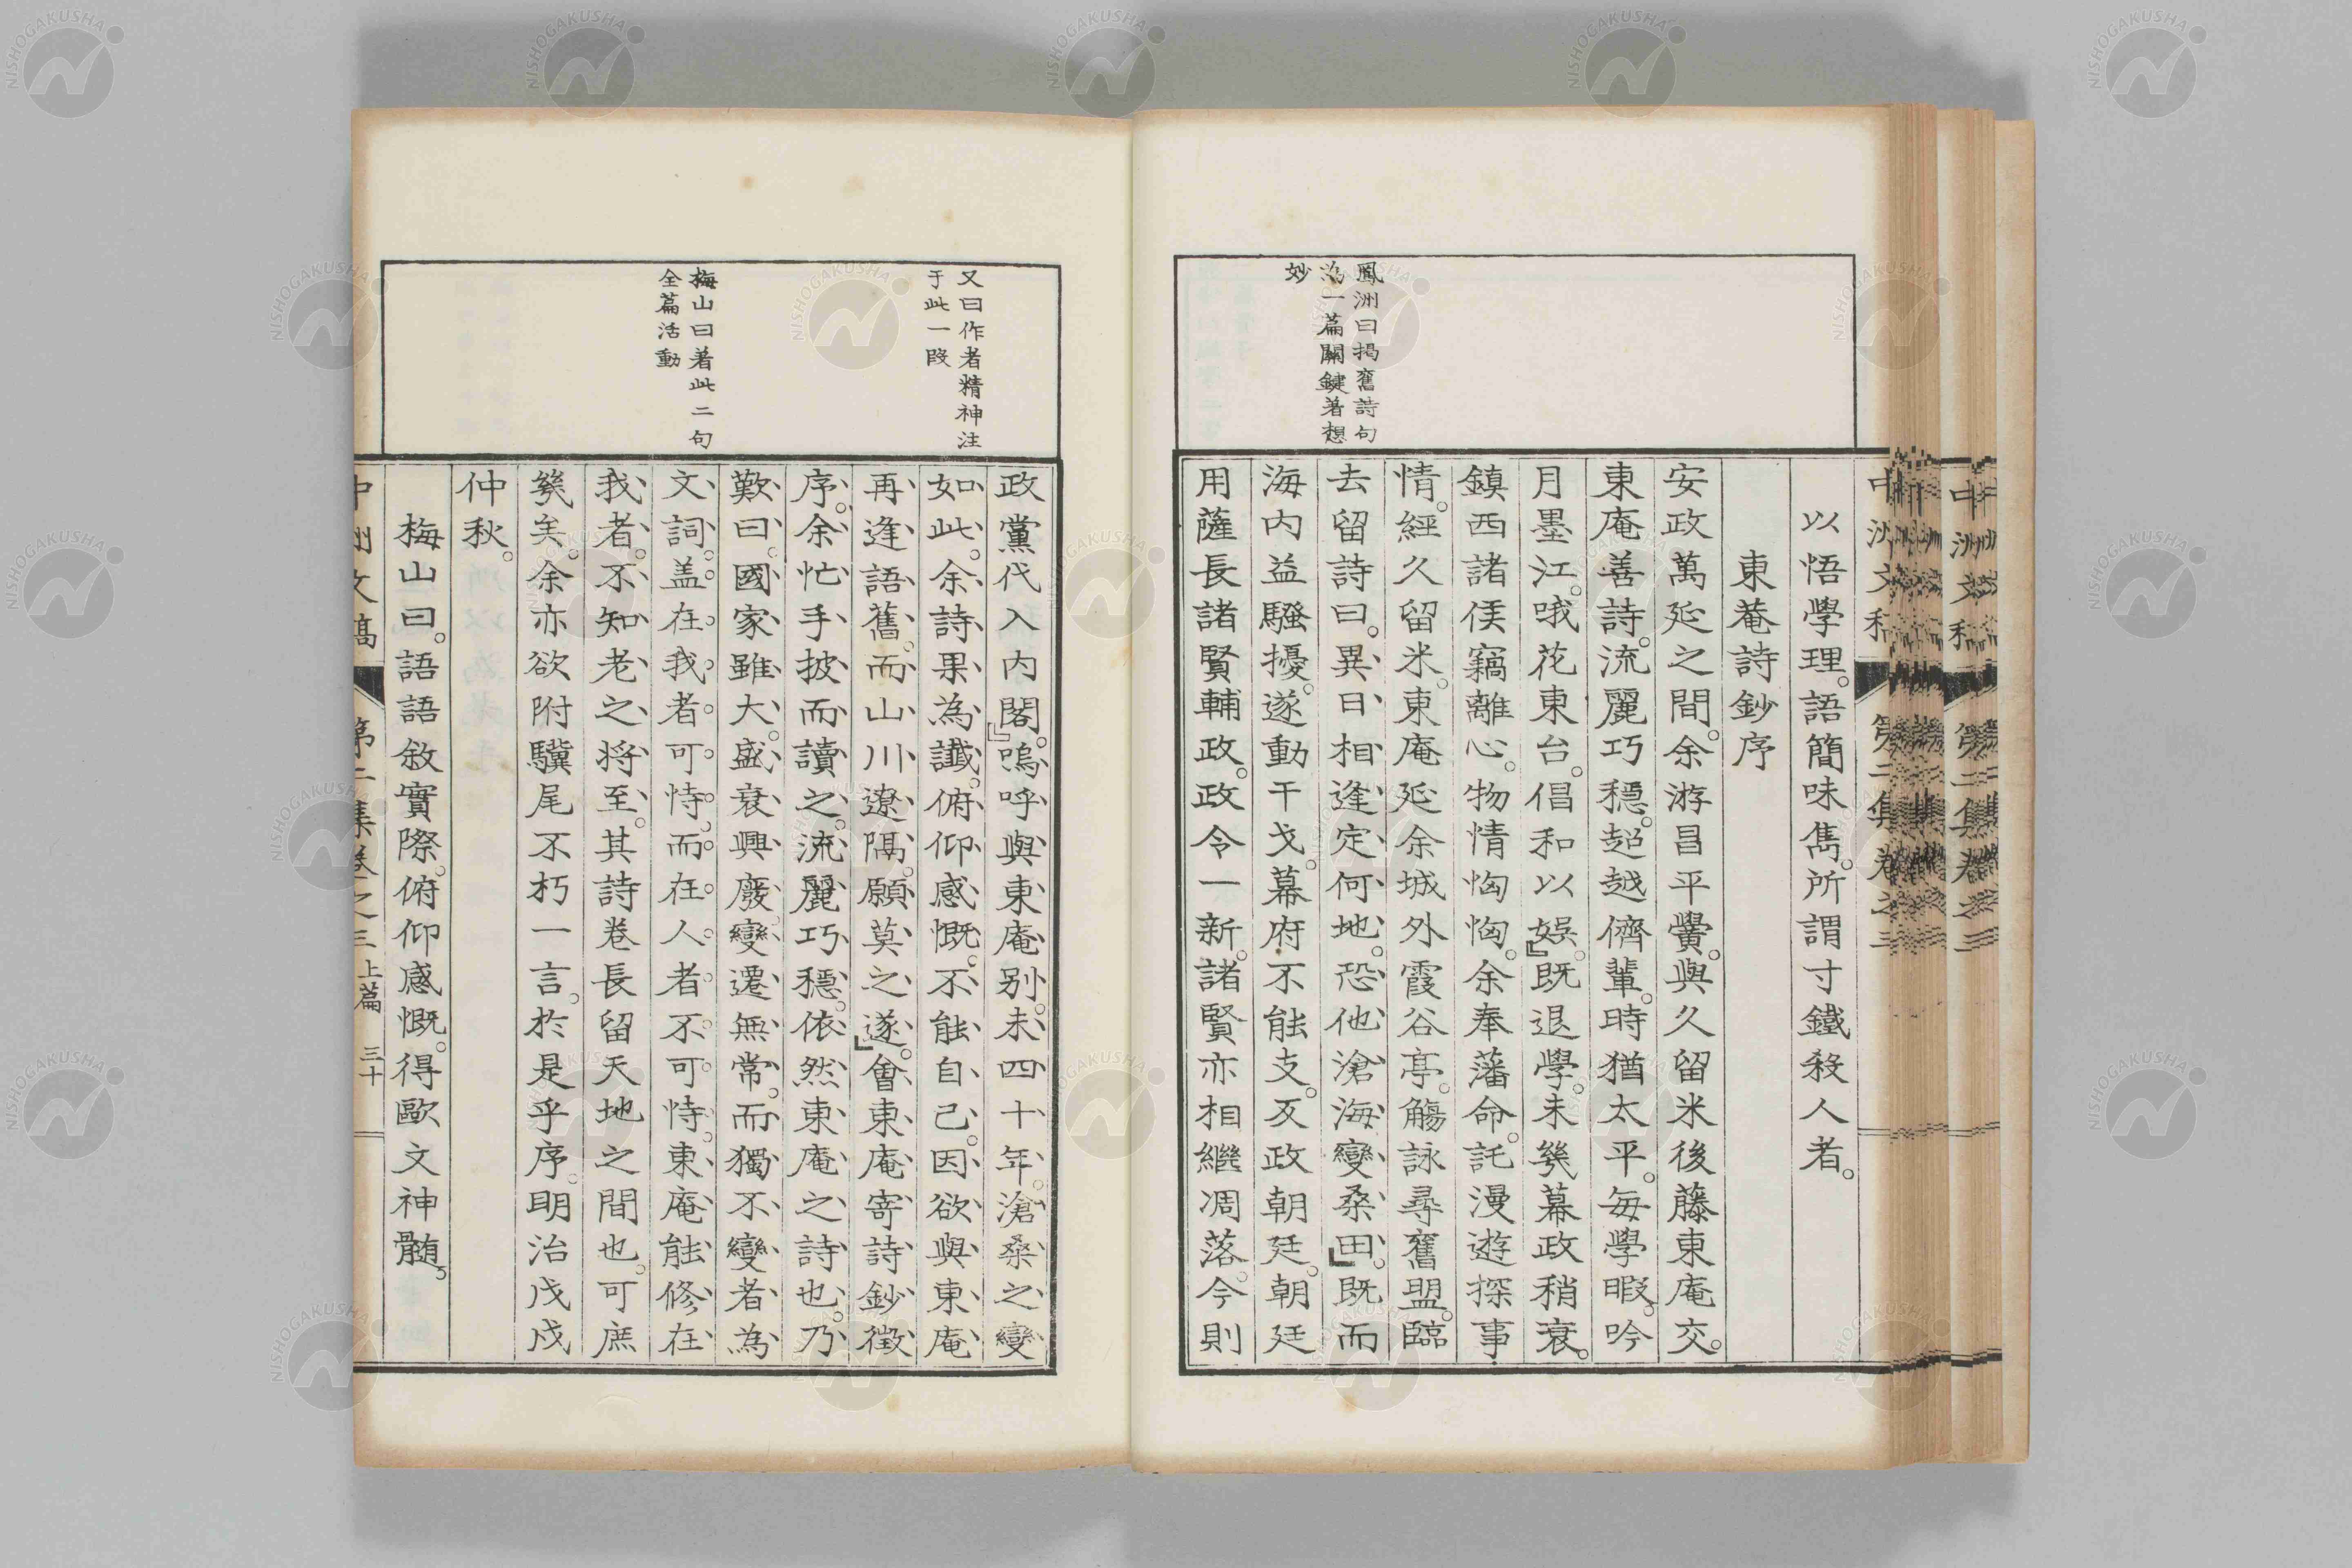 鳳洲曰揭舊詩句
為一篇關鍵著想
妙
以悟學理。語簡味雋。所謂寸鐵殺人者。
東菴詩鈔序
安政萬延之間。余游昌平黌。與久留米後藤東庵交。
東庵善詩。流麗巧穩。超越儕輩。時猶太平。每學暇。吟
月墨江。哦花東台。倡和以娛。』既退學。未幾幕政稍衰。
鎮西諸侯竊離心。物情恟恟。余奉藩命。託漫遊探事
情。經久留米。東庵延余城外霞谷亭。觴詠尋舊盟。臨
去留詩曰。異日相逢定何地。恐他滄海變桑田。』既而
海内益騷擾。遂動干戈。幕府不能支。反政朝廷。朝廷
用薩長諸賢輔政。政令一新。諸賢亦相繼凋落。今則
又曰作者精神注
于此一段
梅山曰着此二句
全篇活動
政黨代入内閣。』嗚呼與東庵別。未四十年。滄桑之變
如此。余詩果為讖。俯仰感慨。不能自己。因欲與東庵
再逢語舊。而山川遼隔。願莫之遂。』會東庵寄詩鈔徵
序。余忙手披而讀之。流麗巧穩。依然東庵之詩也。乃
歎曰。國家雖大。盛衰興廢變遷無常。而獨不變者為
文詞。盖在我者可恃。而在人者不可恃。東庵能修在
我者。不知老之将至。其詩卷長留天地之間也。可庶
幾矣。余亦欲附驥尾不朽一言。於是乎序。明治戊戌
仲秋。
梅山曰。語語敘實際。俯仰感慨。得歐文神髄。
中洲文稿 第二集卷之三 上篇 三十
NISHOGAKUSHA